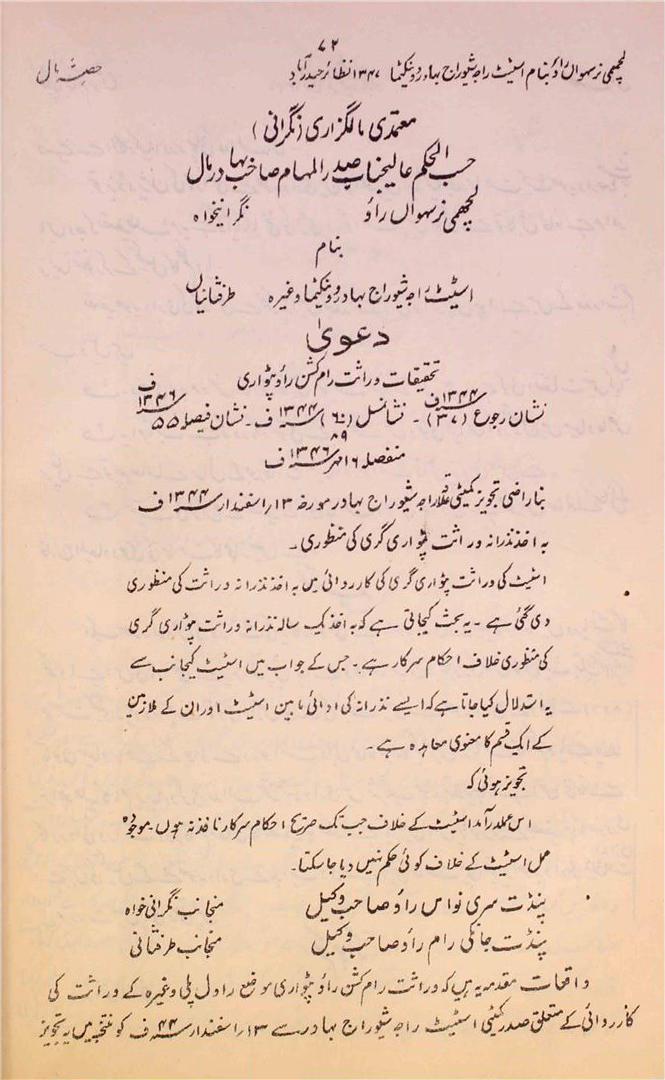 ۷۲
لچھمی نرسہواں راؤ بنام اسٹیٹ راجہ شیوراج بہادر و وینکٹما ۱۳۴۷ نظائر حیدرآباد حصہ مال
معتمدی مالگزاری (نگرانی)
حسب الحکم عالیجناب صدر المہام صاحب بہادر مال
لچھمی نرسہواں راؤ نگرانیخواہ
بنام
اسٹیٹ راجہ شیوراج بہادر و وینکٹما وغیرہ طرفثانیاں
دعویٰ
تحقیقات وراثت رام کشن راؤ پٹواری
نشان رجوع (۳۷) ۱۳۴۴ ف - نشانسل (۶۰/۸۹) ۱۳۴۴ ف - نشان فیصلہ ۵۵ ۱۳۴۶ ف
منفصلہ ۱۶ مہر ۱۳۴۶ ف
بناراضی تجویز کمیٹی علاقہ راجہ شیوراج بہادر مورخہ ۱۳ اسفندار ۱۳۴۴ ف
بہ اخذ نذرانہ وراثت پٹواری گری کی منظوری ۔
اسٹیٹ کی وراثت پٹواری گری کی کارروائی میں بہ اخذ نذرانہ وراثت کی منظوری
دی گئی ہے ۔ یہ بحث کیجاتی ہے کہ بہ اخذ یک سالہ نذرانہ وراثت پٹواری گری
کی منظوری خلاف احکام سرکار ہے ۔ جس کے جواب میں اسٹیٹ کیجانب سے
یہ استدلال کیا جاتا ہے کہ ایسے نذرانہ کی ادائی مابین اسٹیٹ اور ان کے ملازمین
کے ایک قسم کا معنوی معاہدہ ہے ۔
تجویز ہوئی کہ
اس عملدرآمد اسٹیٹ کے خلاف جب تک صریح احکام سرکار نافذ نہ ہوں ۔ موجودہ
عمل اسٹیٹ کے خلاف کوئی حکم نہیں دیا جا سکتا۔
پنڈت سری نواس راؤ صاحب وکیل منجانب نگرانی خواہ
پنڈت جانکی رام راؤ صاحب وکیل منجانب طرفثانی
واقعات مقدمہ یہ ہیں کہ وراثت رام کشن راؤ پٹواری موضع راول پلی وغیرہ کے وراثت کی
کارروائی کے متعلق صدر کمیٹی اسٹیٹ راجہ شیوراج بہادر سے ۱۳ اسفندار ۴۴ ف کو منتخبہ میں یہ تجویز